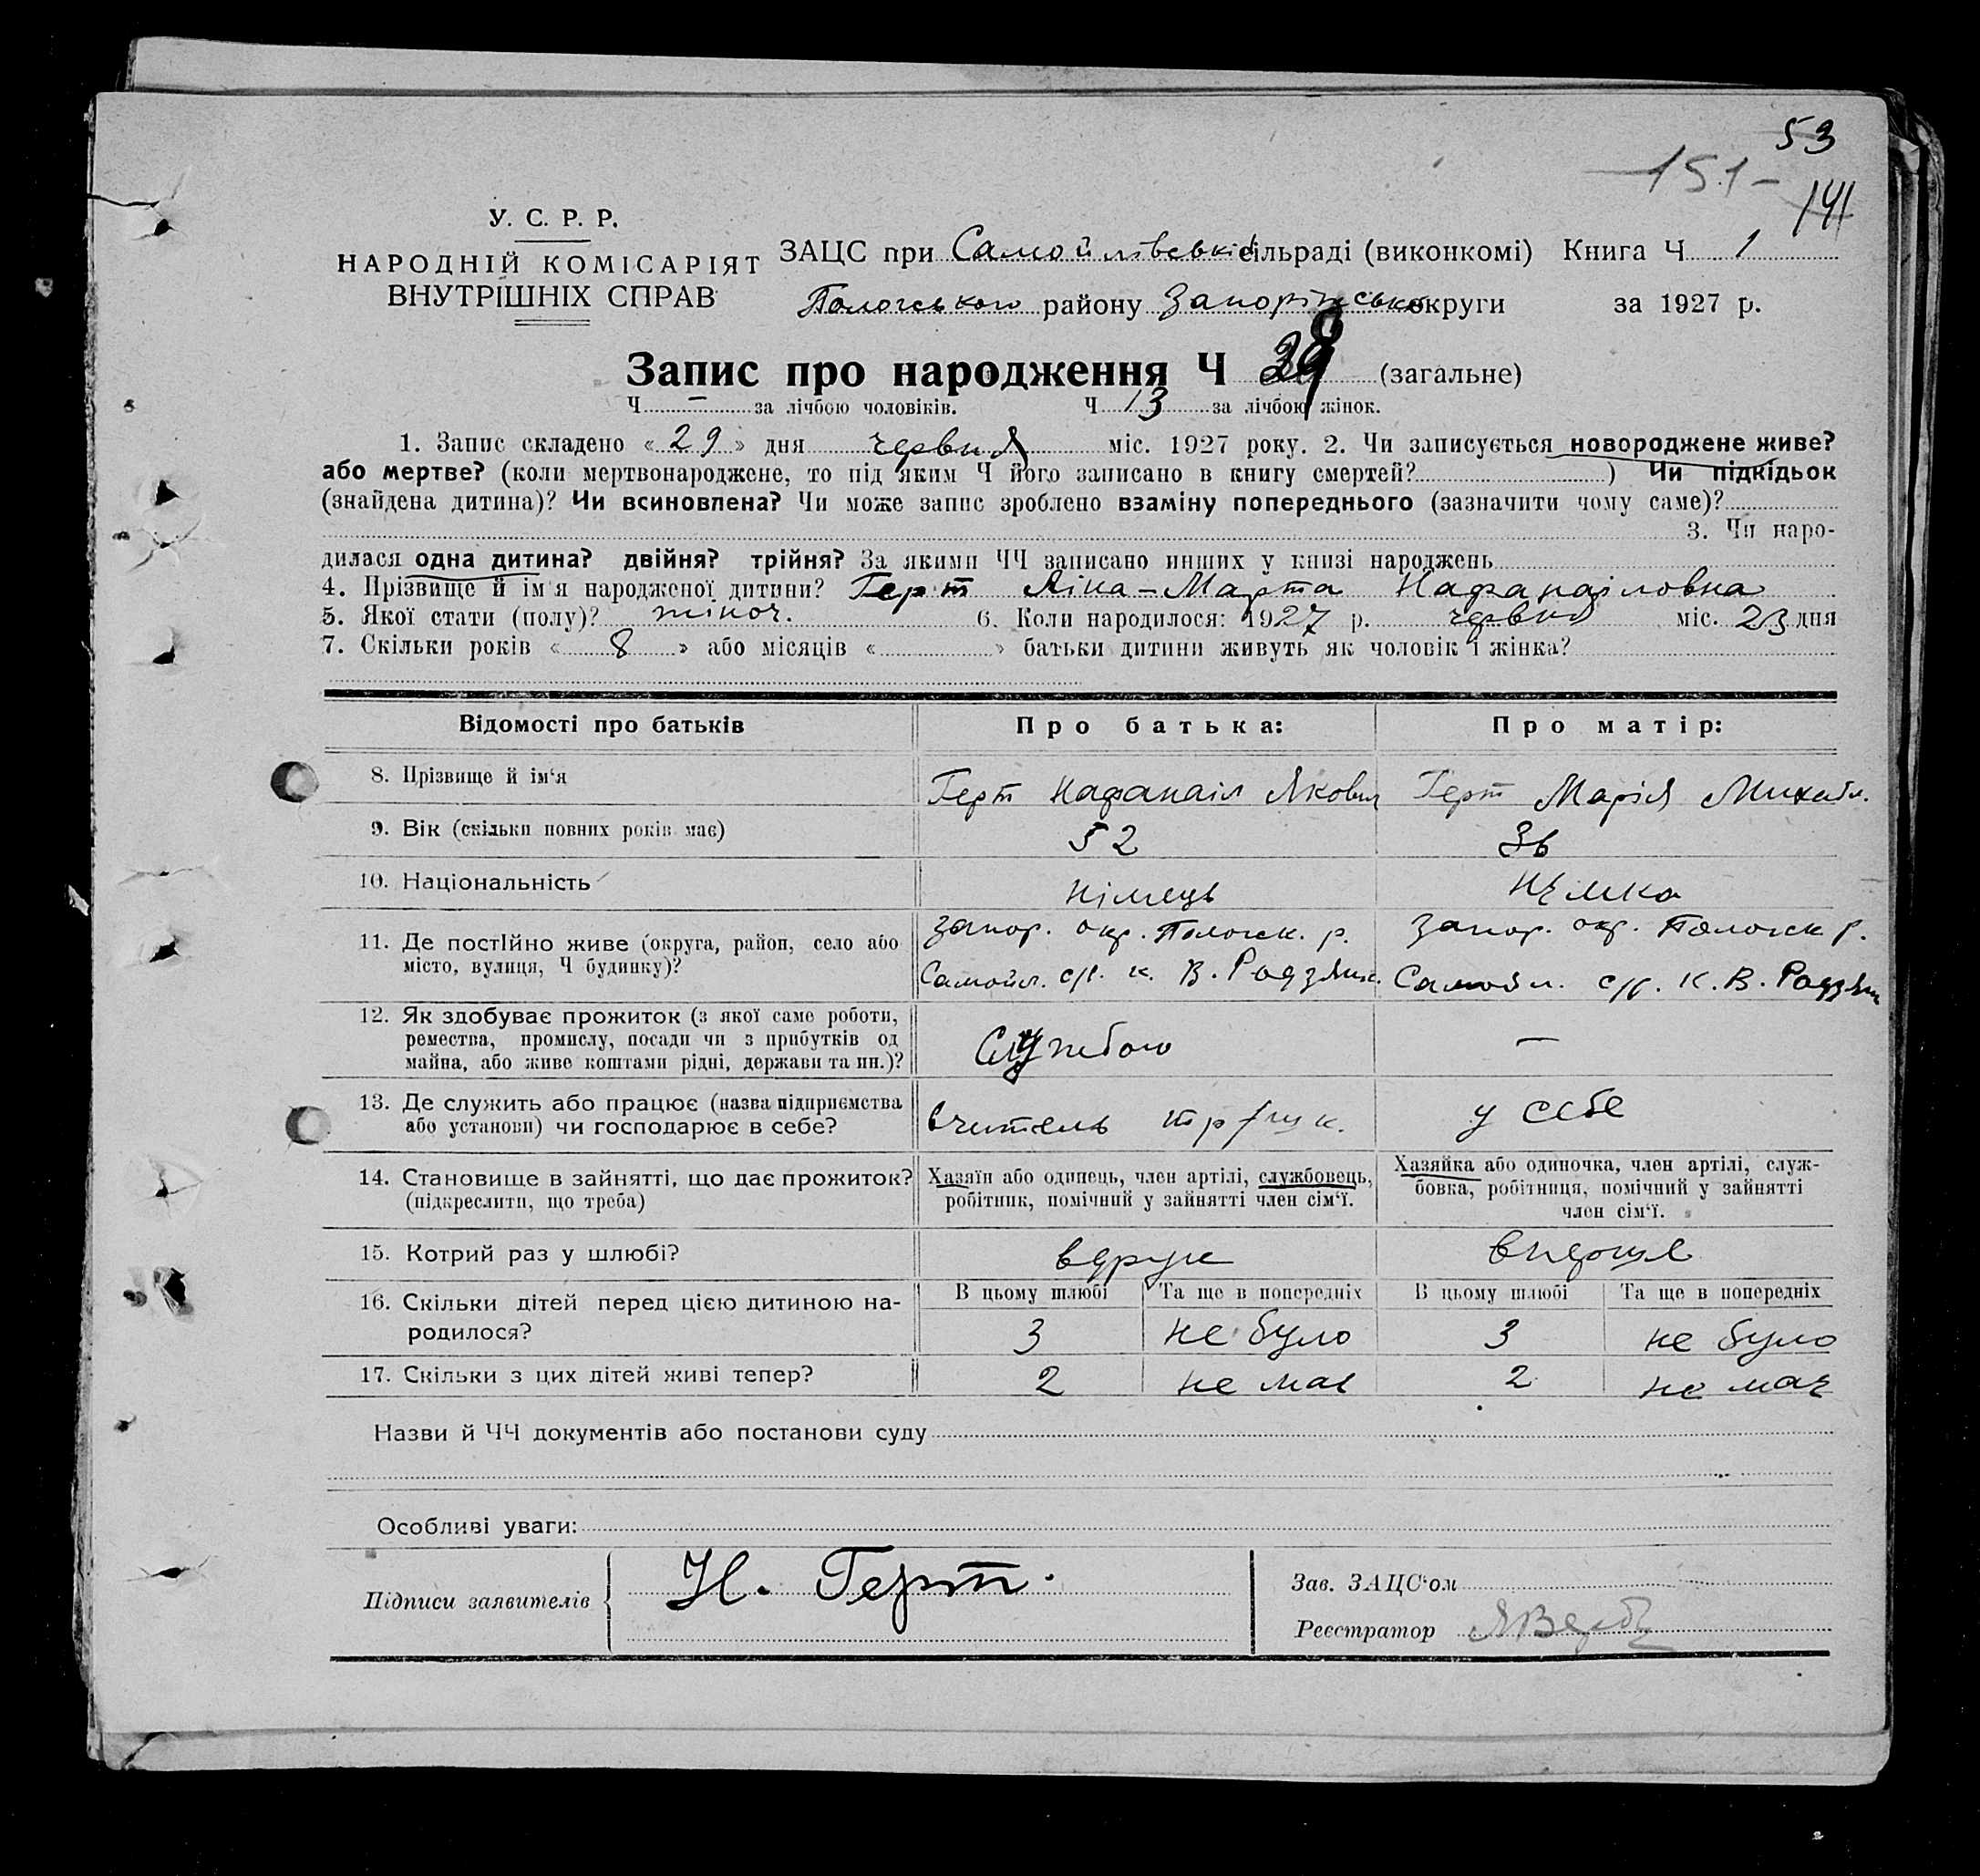 53
151-
141
У. С. Р. Р.
НАРОДНІЙ КОМІСАРІЯТ
ВНУТРІШНІХ СПРАВ
ЗАЦС при Самойлівській сільраді (виконкомі) Книга Ч 1
Пологського району Запорізської округи за 1927 р.
Запис про народження Ч 38 (загальне)
Ч — за лічбою чоловіків. Ч 13 за лічбою жінок.
1. Запис складено «29» дня червня міс. 1927 року. 2. Чи записується новороджене живе?
або мертве? (коли мертвонароджене, то під яким Ч його записано в книгу смертей? ) Чи підкідьок
(знайдена дитина)? Чи всиновлена? Чи може запис зроблено взаміну попереднього (зазначити чому саме)?
3. Чи наро-
дилася одна дитина? двійня? трійня? За якими ЧЧ записано инших у книзі народжень
4. Прізвище й ім'я народженої дитини? Герт Ліна-Марта Нафанаіловна
5. Якої стати (полу)? жіноч. 6. Коли народилося: 1927 р. червня міс. 23 дня
7. Скільки років « 8 » або місяців « » батьки дитини живуть як чоловік і жінка?
Відомості про батьків Про батька: Про матір:
8. Прізвище й ім'я Герт Нафанаіл Якович Герт Марія Михайл.
9. Вік (скільки повних років має) 52 36
10. Національність німець німка
11. Де постійно живе (округа, район, село або Запор. окр. Пологск. р. Запор. окр. Пологск р.
місто, вулиця, Ч будинку)? Самойл. с/р. к. В. Родзянк. Самойл. с/р. к. В. Родзян
12. Як здобуває прожиток (з якої саме роботи,
ремества, промислу, посади чи з прибутків од Службою —
майна, або живе коштами рідні, держави та ин.)?
13. Де служить або працює (назва підприємства
або установи) чи господарює в себе? вчитель у себе
14. Становище в зайнятті, що дає прожиток? Хазяїн або одинець, член артілі, службовець, Хазяйка або одиночка, член артілі, служ-
(підкреслити, що треба) робітник, помічний у зайнятті член сім'ї. бовка, робітниця, помічний у зайнятті
член сім'ї.
15. Котрий раз у шлюбі? вдруге вперше
В цьому шлюбі Та ще в попередніх В цьому шлюбі Та ще в попередніх
16. Скільки дітей перед цією дитиною на-
родилося? 3 не було 3 не було
17. Скільки з цих дітей живі тепер? 2 не має 2 не має
Назви й ЧЧ документів або постанови суду
Особливі уваги:
Підписи заявителів Н. Герт. Зав. ЗАЦС'ом
Реєстратор